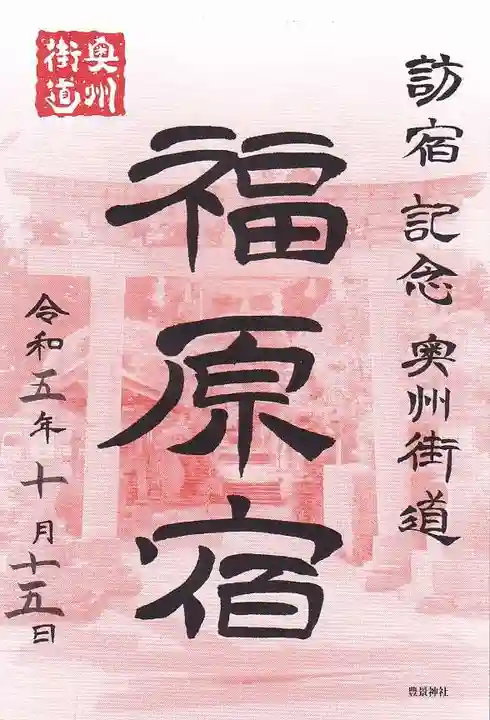 訪宿 記念 奥州街道
奥州
街道
福原宿
令和五年十月十五日
豊景神社